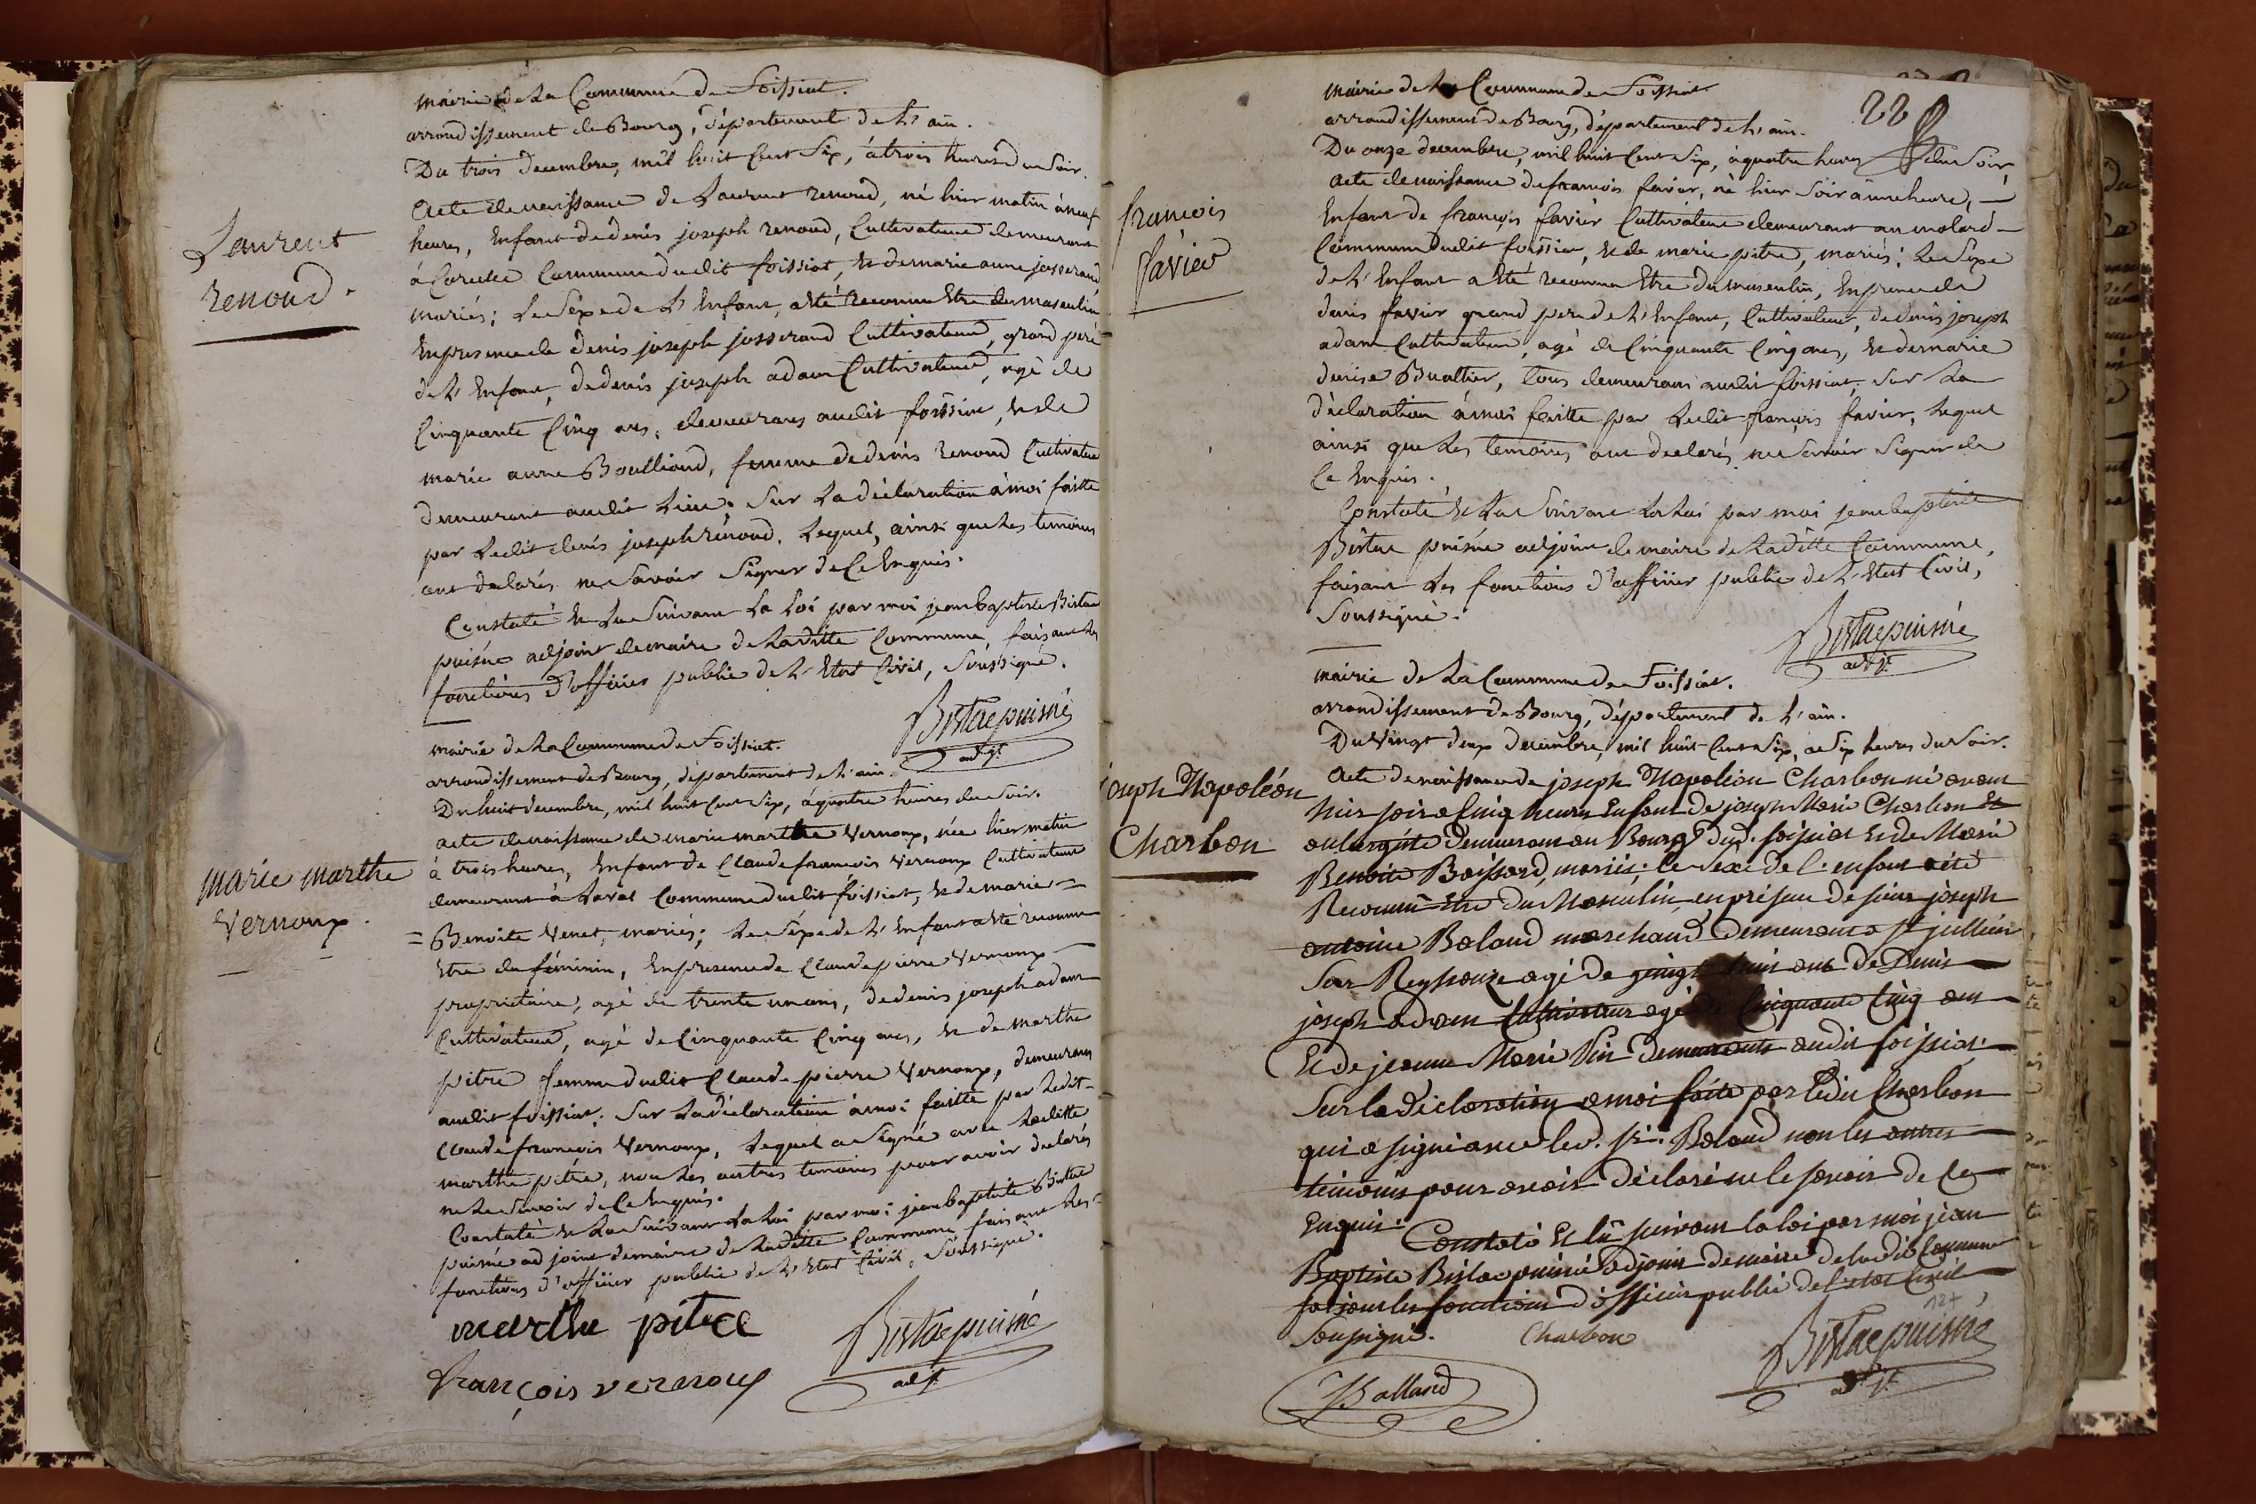 mairie de La Commune de Foissiat.
arrondissement de Bourg, département de L'ain.
Du trois decembre, mil huit Cent Six, à trois heures du Soir.
Laurent
renoud.
Acte de naissance de Laurent renoud, né hier matin à neuf
heures, Enfant de denis joseph renoud, Cultivateur demeurant
à Commune dudit foissiat, Et de marie anne josserand
mariés; Le Sexe de L'Enfant, a Eté reconnu Etre du masculin
En presence de denis joseph josserand Cultivateur, grand pere
de L'Enfant, de denis joseph adam Cultivateur, agé de
Cinquante Cinq ans, demeurans audit foissiat, Et de
marie anne Boulliaud, femme de denis renoud Cultivateur
demeurant audit Lieu; Sur La déclaration à moi faitte
par Ledit denis joseph renoud, Lequel, ainsi que Les temoins
ont declarés ne Savoir Signer de Ce Enquis.
Constaté Et Lu Suivant La Loi par moi jean baptiste Bistac
puisné adjoint demaire de Laditte Commune, faisant Les
fonctions d'officier public de L'Etat Civil, Soussigné.
Bistac puisné
adj.t
mairie de La Commune de Foissiat.
arrondissement de Bourg, département de L'ain.
Du huit decembre, mil huit Cent Six, à quatre heures du Soir.
marie marthe
Vernoux.
acte de naissance de marie marthe Vernoux, née hier matin
à trois heures, Enfant de Claude françois Vernoux Cultivateur
demeurant à Commune dudit foissiat, Et de marie =
= Benoite Venet, mariés; Le Sexe de L'Enfant a Eté reconnu
Etre du féminin, En presence de Claude pierre Vernoux
propriétaire, agé de trente un ans, de denis joseph adam
Cultivateur, agé de Cinquante Cinq ans, Et de marthe
pitre femme dudit Claude pierre Vernoux, demeurans
audit foissiat; Sur La déclaration à moi faitte par Ledit
Claude françois Vernoux, Lequel a Signé avec Laditte
marthe pitre, non Les autres temoins pour avoir declarés
ne Le Savoir de Ce Enquis.
Constaté Et Lu Suivant La Loi par moi jean baptiste Bistac
puisné adjoint demaire de Laditte Commune faisant Les
fonctions d'officier public de L'Etat Civil, Soussigné.
marthe pitre
françois vernoux
Bistac puisné
adj.t
mairie de La Commune de Foissiat
228
arrondissement de Bourg, département de L'ain.
Du onze decembre, mil huit Cent Six, à quatre heures du Soir,
françois
favier
Acte de naissance de francois favier, né hier Soir à une heure,
Enfant de françois favier Cultivateur demeurant au molard
Commune dudit foissiat, Et de marie pitre, mariés; Le Sexe
de L'Enfant a Eté reconnu Etre du masculin, En presence de
denis favier grand pere de L'Enfant, Cultivateur, de denis joseph
adam Cultivateur, agé de Cinquante Cinq ans, Et de marie
denise Buattier, tous demeurans audit foissiat; Sur La
déclaration à moi faitte par Ledit françois favier, Lequel
ainsi que Les temoins ont declarés ne Savoir Signer de
Ce Enquis.
Constaté Et Lu Suivant La Loi par moi jean baptiste
Bistac puisné adjoint demaire de Laditte Commune,
faisant Les fonctions d'officier public de L'Etat Civil,
Soussigné.
Bistac puisné
adj.t
mairie de La Commune de Foissiat.
arrondissement de Bourg, département de L'ain.
Du Vingt deux decembre, mil huit Cent Six, a Six heures du Soir.
joseph Napoléon
Charbon
Acte de naissance de joseph Napoléon Charbon né avant
hier soir a Cinq heures Enfant de joseph Marie Charbon
aubergiste demeurant au Bourg dud. foissiat Et de Marie
Benoite Boissard, mariés; le sexe de l'enfant a été
Reconnu Etre du Masculin, en présence de sieur joseph
antoine Balaud marchand demeurant a St jullien
Sur Reyssouze agé de ans de Denis
joseph adam Cultivateur agé de Cinquante Cinq ans
Et de jeanne Marie demeurants audit foissiat
Sur la déclaration a moi faite par ledit Charbon
qui a signé avec led. sr. Balaud non les autres
témoins pour avoir déclaré ne le savoir de Ce
Enquis. Constaté Et lû suivant la loi par moi jean
Baptiste Bistac puisné adjoint demaire de ladite Commune
faisant les fonctions d'officier public de l'etat Civil
Soussigné.
Charbon
Bistac puisné
adj.t
Balland